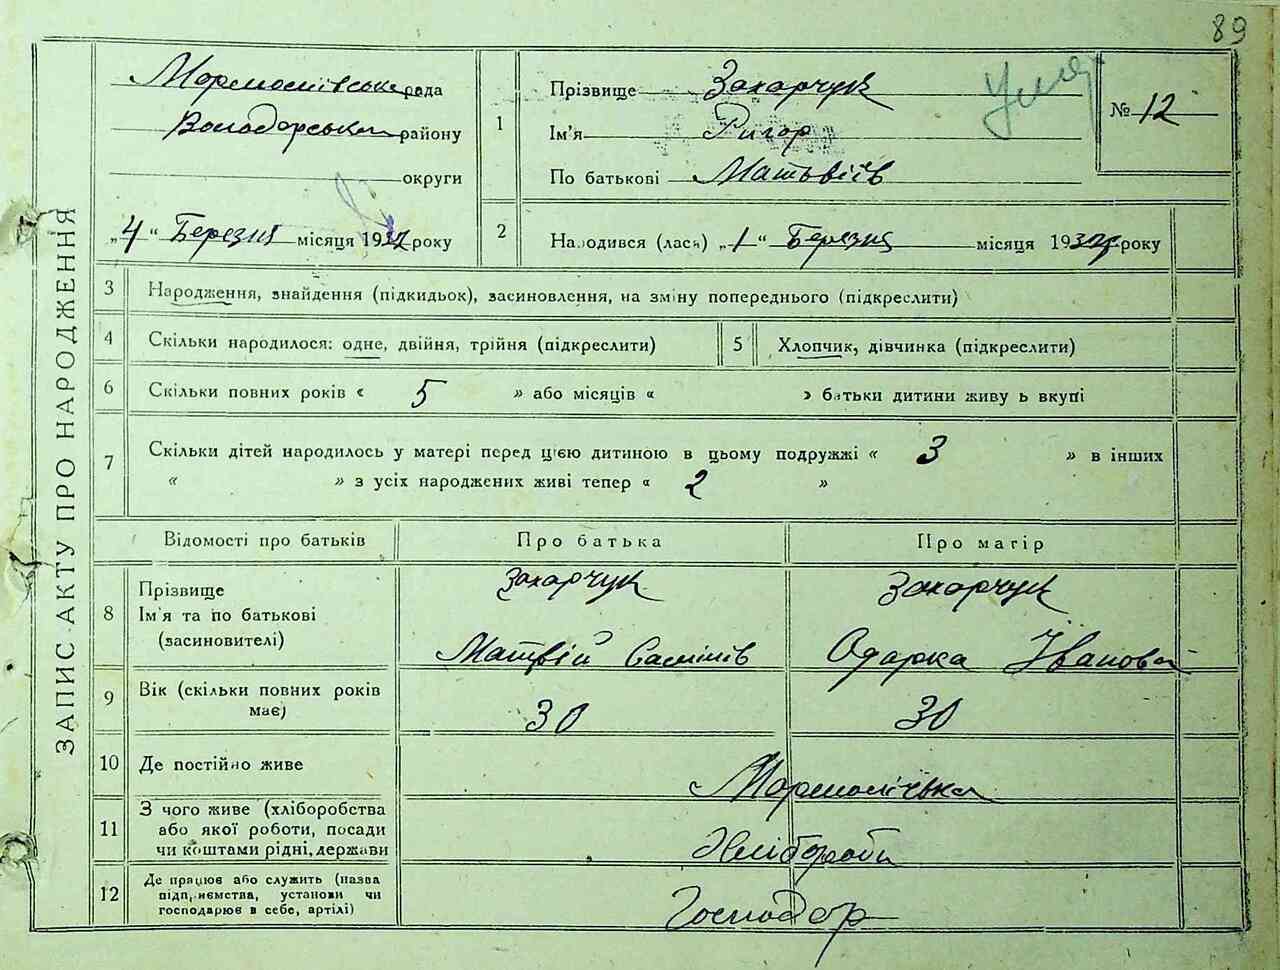 89
Мармоліївська рада
Володарського району
округи
„4“ Березня місяця 193 року
ЗАПИС АКТУ ПРО НАРОДЖЕННЯ
1
Прізвище Захарчук
Ім'я Ригор
По батькові Матьвіїв
Умер
№ 12
2 Народився (лася) „1“ Березня місяця 193 року
3 Народження, знайдення (підкидьок), засиновлення, на зміну попереднього (підкреслити)
4 Скільки народилося: одне, двійня, трійня (підкреслити)
5 Хлопчик, дівчинка (підкреслити)
6 Скільки повних років « 5 » або місяців « » батьки дитини живуть вкупі
7 Скільки дітей народилось у матері перед цією дитиною в цьому подружжі « 3 » в інших
« » з усіх народжених живі тепер « 2 »
Відомості про батьків Про батька Про матір
8 Прізвище Захарчук Захарчук
Ім'я та по батькові
(засиновителі) Матвій Одарка Іванова
9 Вік (скільки повних років
має) 30 30
10 Де постійно живе Мармоліївка
11 З чого живе (хліборобства
або якої роботи, посади
чи коштами рідні, держави Хлібороби
12 Де працює або служить (назва
підприємства, установи чи
господарює в себе, артілі) Господар